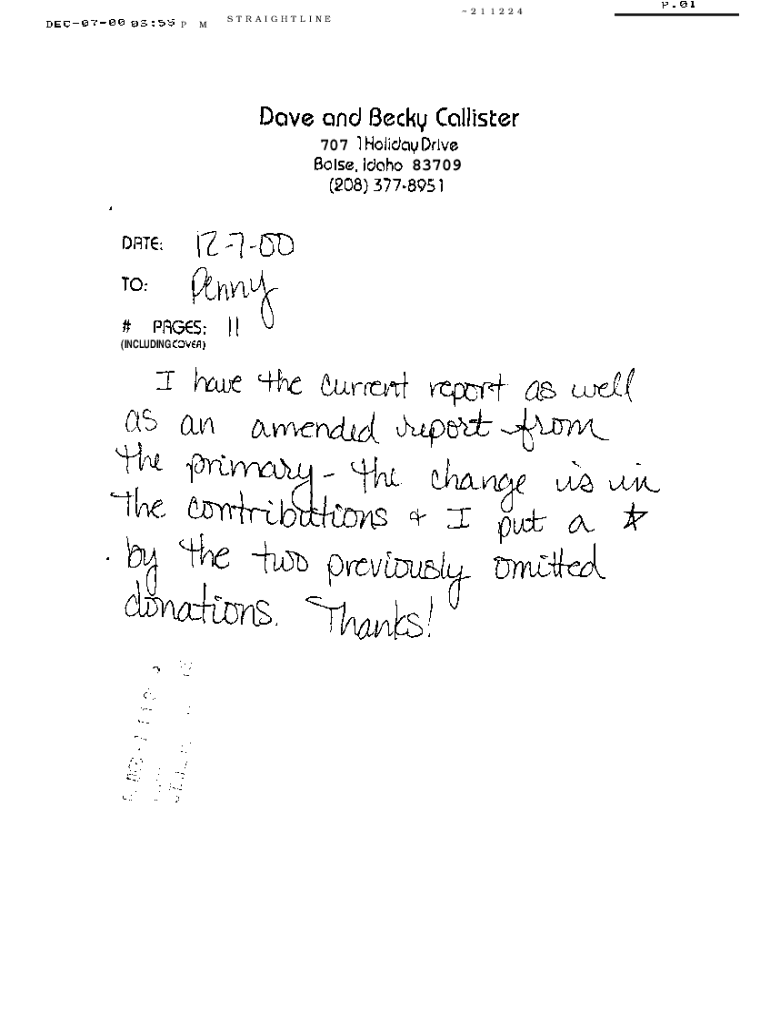 DEC-07-00 03:55 P M STRAIGHTLINE -211224 P.01
Dave and Becky Callister
707 1 Holiday Drive
Boise, Idaho 83709
(208) 377-8951
DATE: 12-7-00
TO: Penny
# PAGES: 11
(INCLUDING COVER)
I have the current report as well
as an amended report from
the primary - the change is in
the contributions & I put a ☆
by the two previously omitted
donations. Thanks!